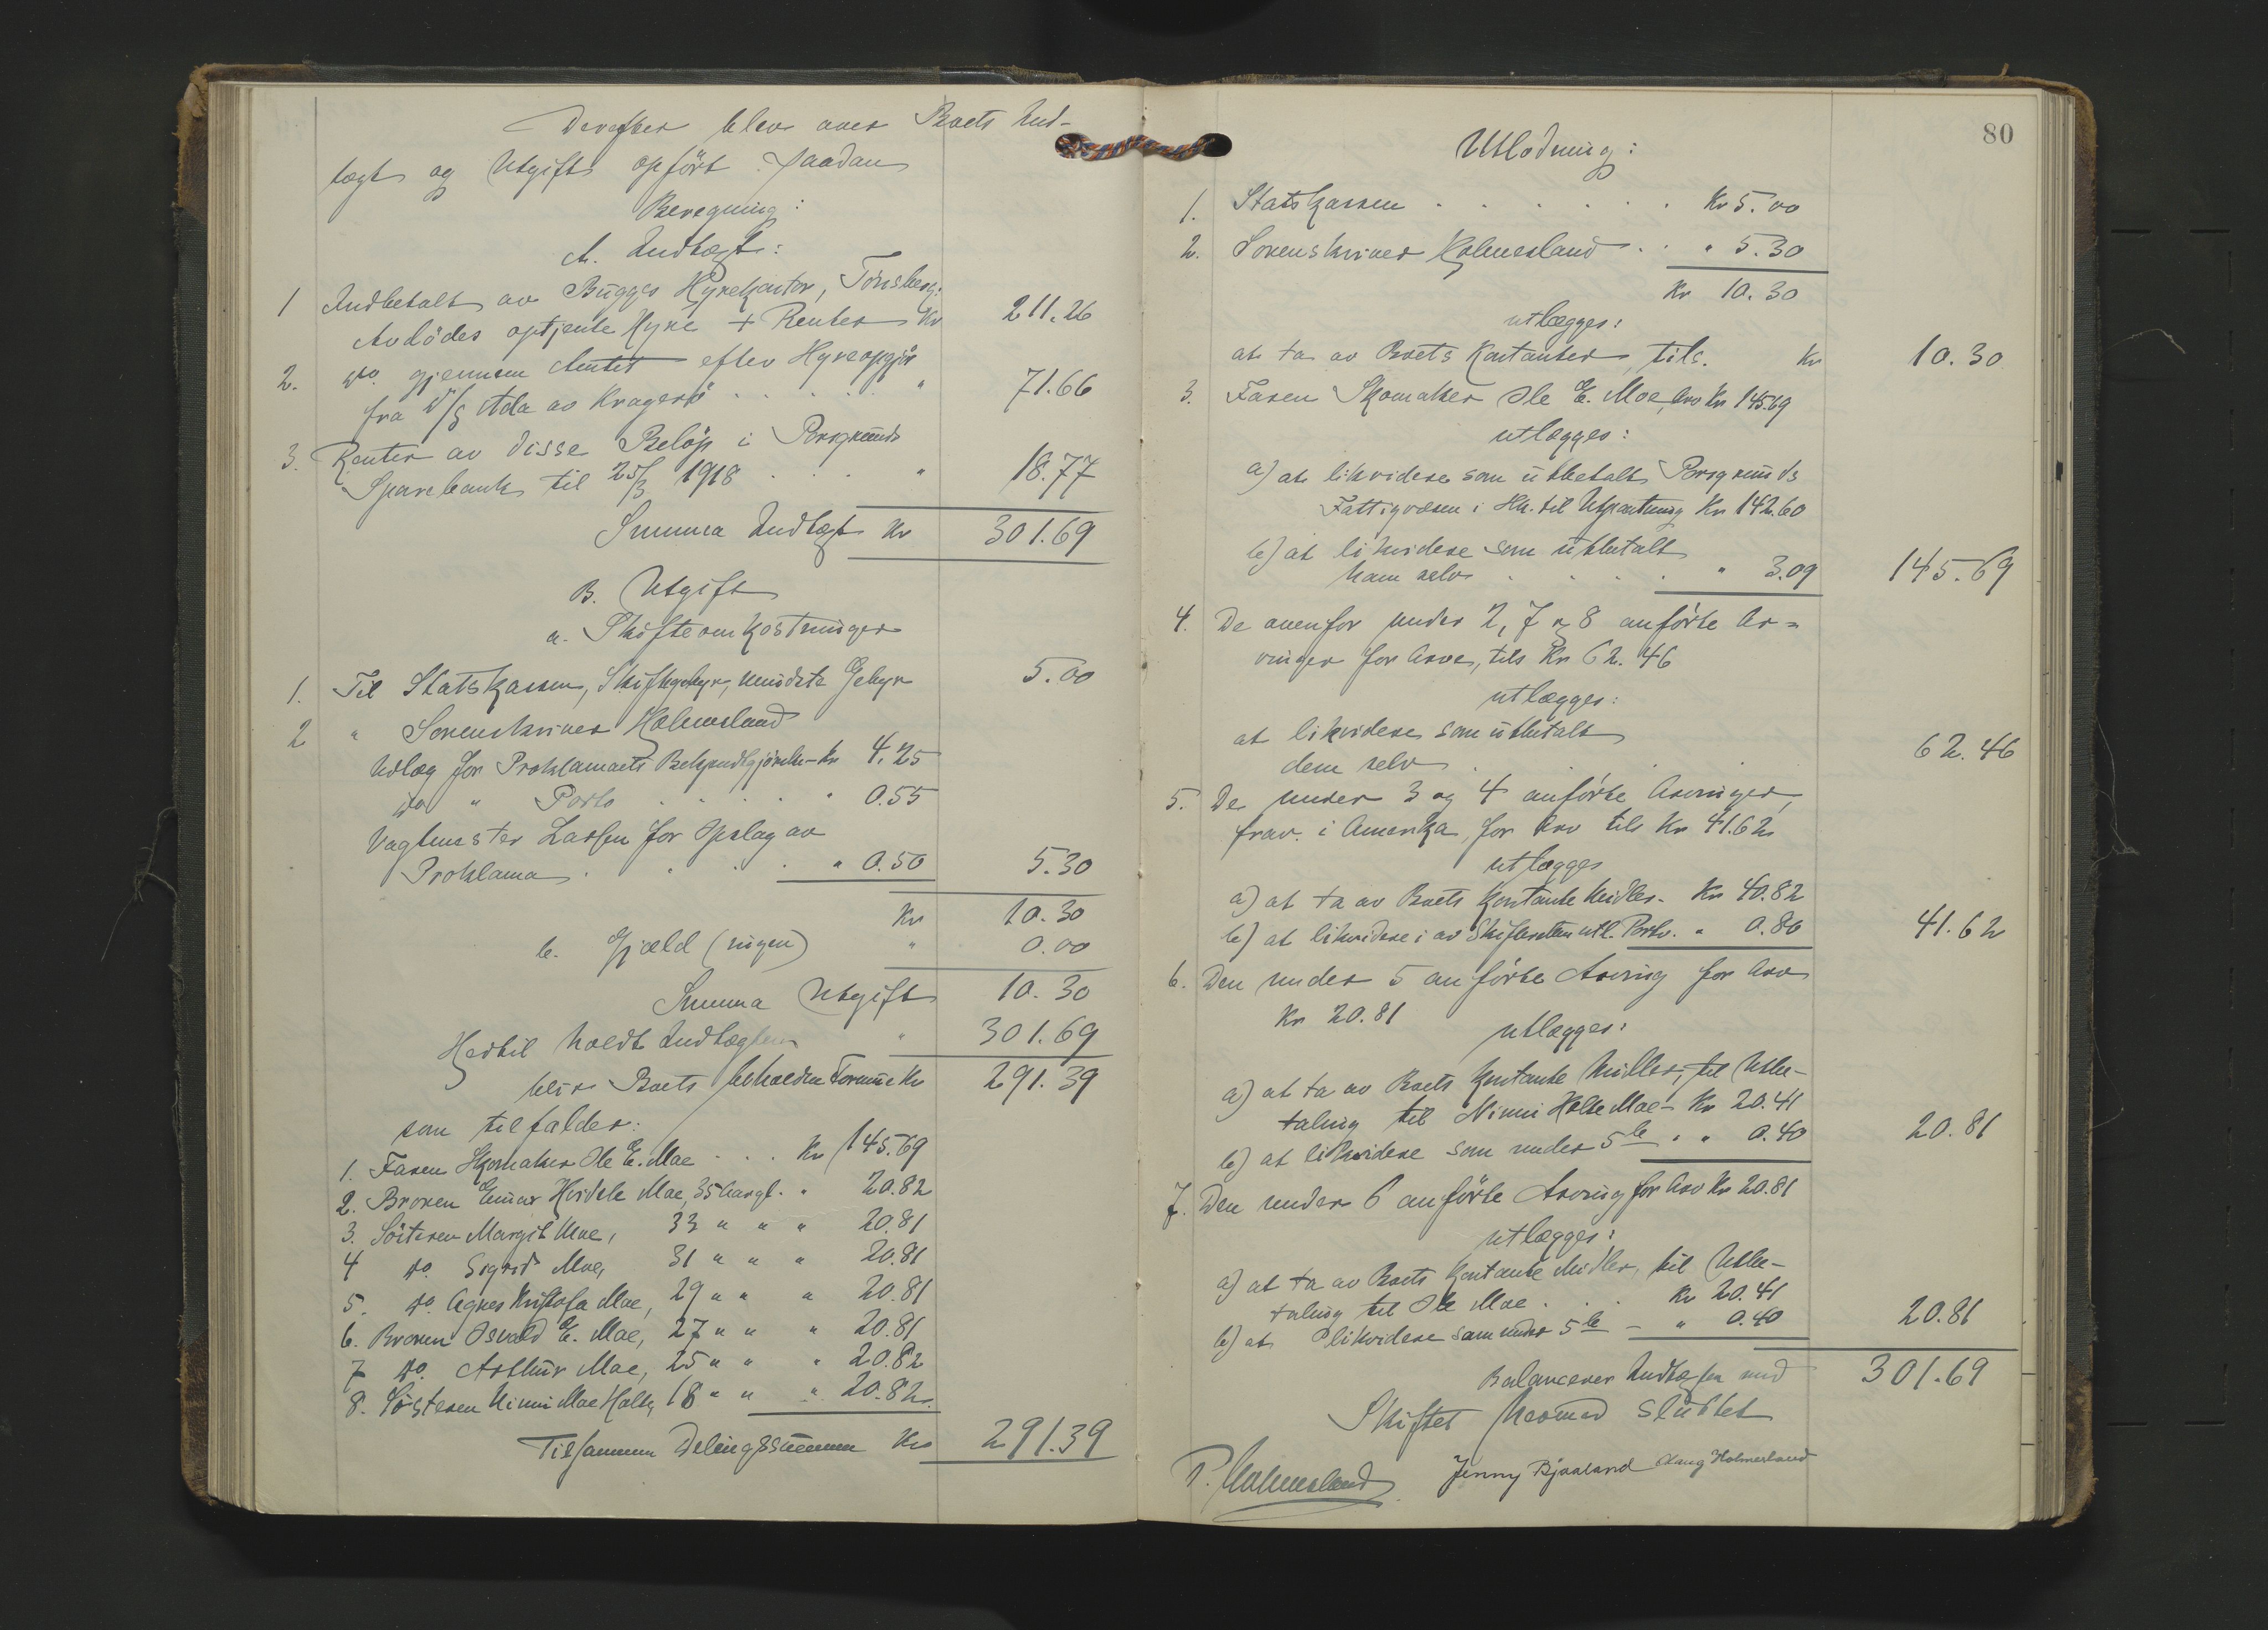 Derefter blev over Boets Ind-
tægt og Utgift opført saadan
Beregning:
A. Indtægt:
1 Indbetalt av Bugges Hyrekontor, Tønsberg:
Avdødes optjente Hyre + Renter Kr 211.26
2. do. gjennem Amtet efter Hyreopgjör
fra D/S Ada av Kragerö . . . . . " 71.66
3. Renter av disse Beløp i Porsgrunds
Sparebank til 25/3 1918 . . . " 18.77
Summa Indtægt Kr 301.69
B. Utgift
a. Skifteomkostninger
1. Til Statskassen, Skiftegebyr, mindste Gebyr 5.00
2 " Sorenskriver Holmesland
Utlæg for Proklamaets Bekjendtgjörelse - Kr 4.25
do " Porto . . . . . " 0.55
Vagtmester Larsen for Opslag av
Proklama . . . . " 0.50 5.30
Kr 10.30
b. Gjæld (ingen) " 0.00
Summa Utgift 10.30
Hertil holdt Indtægten " 301.69
blir Boets beholdne Formue Kr 291.39
som tilfalder:
1. Faren Skomaker Ole E. Moe . . . Kr 145.69
2. Broren Einar Hvidsle Moe, 35 Aar gl. " 20.82
3. Søsteren Margit Moe, 33 " " " 20.81
4 do. Sigrid Moe, 31 " " " 20.81
5. do. Agnes Kristofa Moe, 29 " " " 20.81
6. Broren Osvald E. Moe, 27 " " " 20.81
7 do. Arthur Moe, 25 " " " 20.82
8. Søsteren Nimi Moe Holte, 18 " " " 20.82.
Tilsammen Delingssummen Kr 291.39
80
Utlodning:
1. Statskassen . . . . . . Kr 5.00
2. Sorenskriver Holmesland . . " 5.30
Kr 10.30
utlægges:
at ta av Boets Kontanter, tils. Kr 10.30
3. Faren Skomaker Ole E. Moe, Arv Kr 145.69
utlægges:
a) at likvidere som utbetalt Porsgrunds
Fattigvæsen i Hh. til Utpantning Kr 142.60
b) at likvidere som utbetalt
ham selv . . . . " 3.09 145.69
4. De ovenfor under 2, 7 og 8 anförte Ar-
vinger for Arv, tils Kr 62.46
utlægges:
at likvidere som utbetalt
dem selv . . . 62.46
5. De under 3 og 4 anförte Arvinger,
frav. i Amerika, for Arv tils Kr 41.62
utlægges
a) at ta av Boets kontante Midler - Kr 40.82
b) at likvidere i av Skifteretten utl. Porto. " 0.80 41.62
6. Den under 5 anförte Arving for Arv
Kr 20.81
utlægges:
a) at ta av Boets kontante Midler, til Utbe-
taling til Nimi Holte Moe - Kr 20.41
b) at likvidere som under 5 b " " 0.40 20.81
7. Den under 6 anförte Arving for Arv Kr 20.81
utlægges:
a) at ta av Boets kontante Midler, til Utbe-
taling til Ole Moe . . . Kr 20.41
b) at likvidere som under 5 b - " 0.40 20.81
Balancerer Indtægten med 301.69
Skiftet hermed sluttet
P. Holmesland Jenny Bjaaland Aang Holmesland